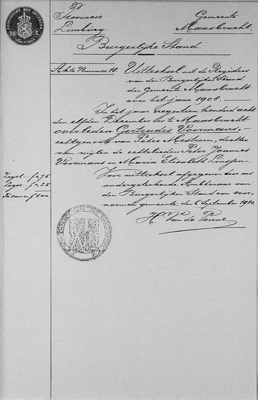 Provincie
Limburg
Gemeente
Maasbracht
Burgerlijke Stand
Akte Nummer 18. Uittreksel uit de Registers
van den Burgerlijken Stand
der Gemeente Maasbracht
over het jaar 1908.
In het jaar negentien honderd acht
den elfden December is te Maasbracht
overleden Gertrudis Voormans,
echtgenoot van Peter
van wijlen de echtelieden Peter Joannes
Voormans en Maria Elisabeth
Voor uittreksel afgegeven door ons
ondergeteekende Ambtenaar
van den Burgerlijken Stand van voor-
noemde gemeente, den 6 September 1910.
H. Van de
Zegel f
Leges f